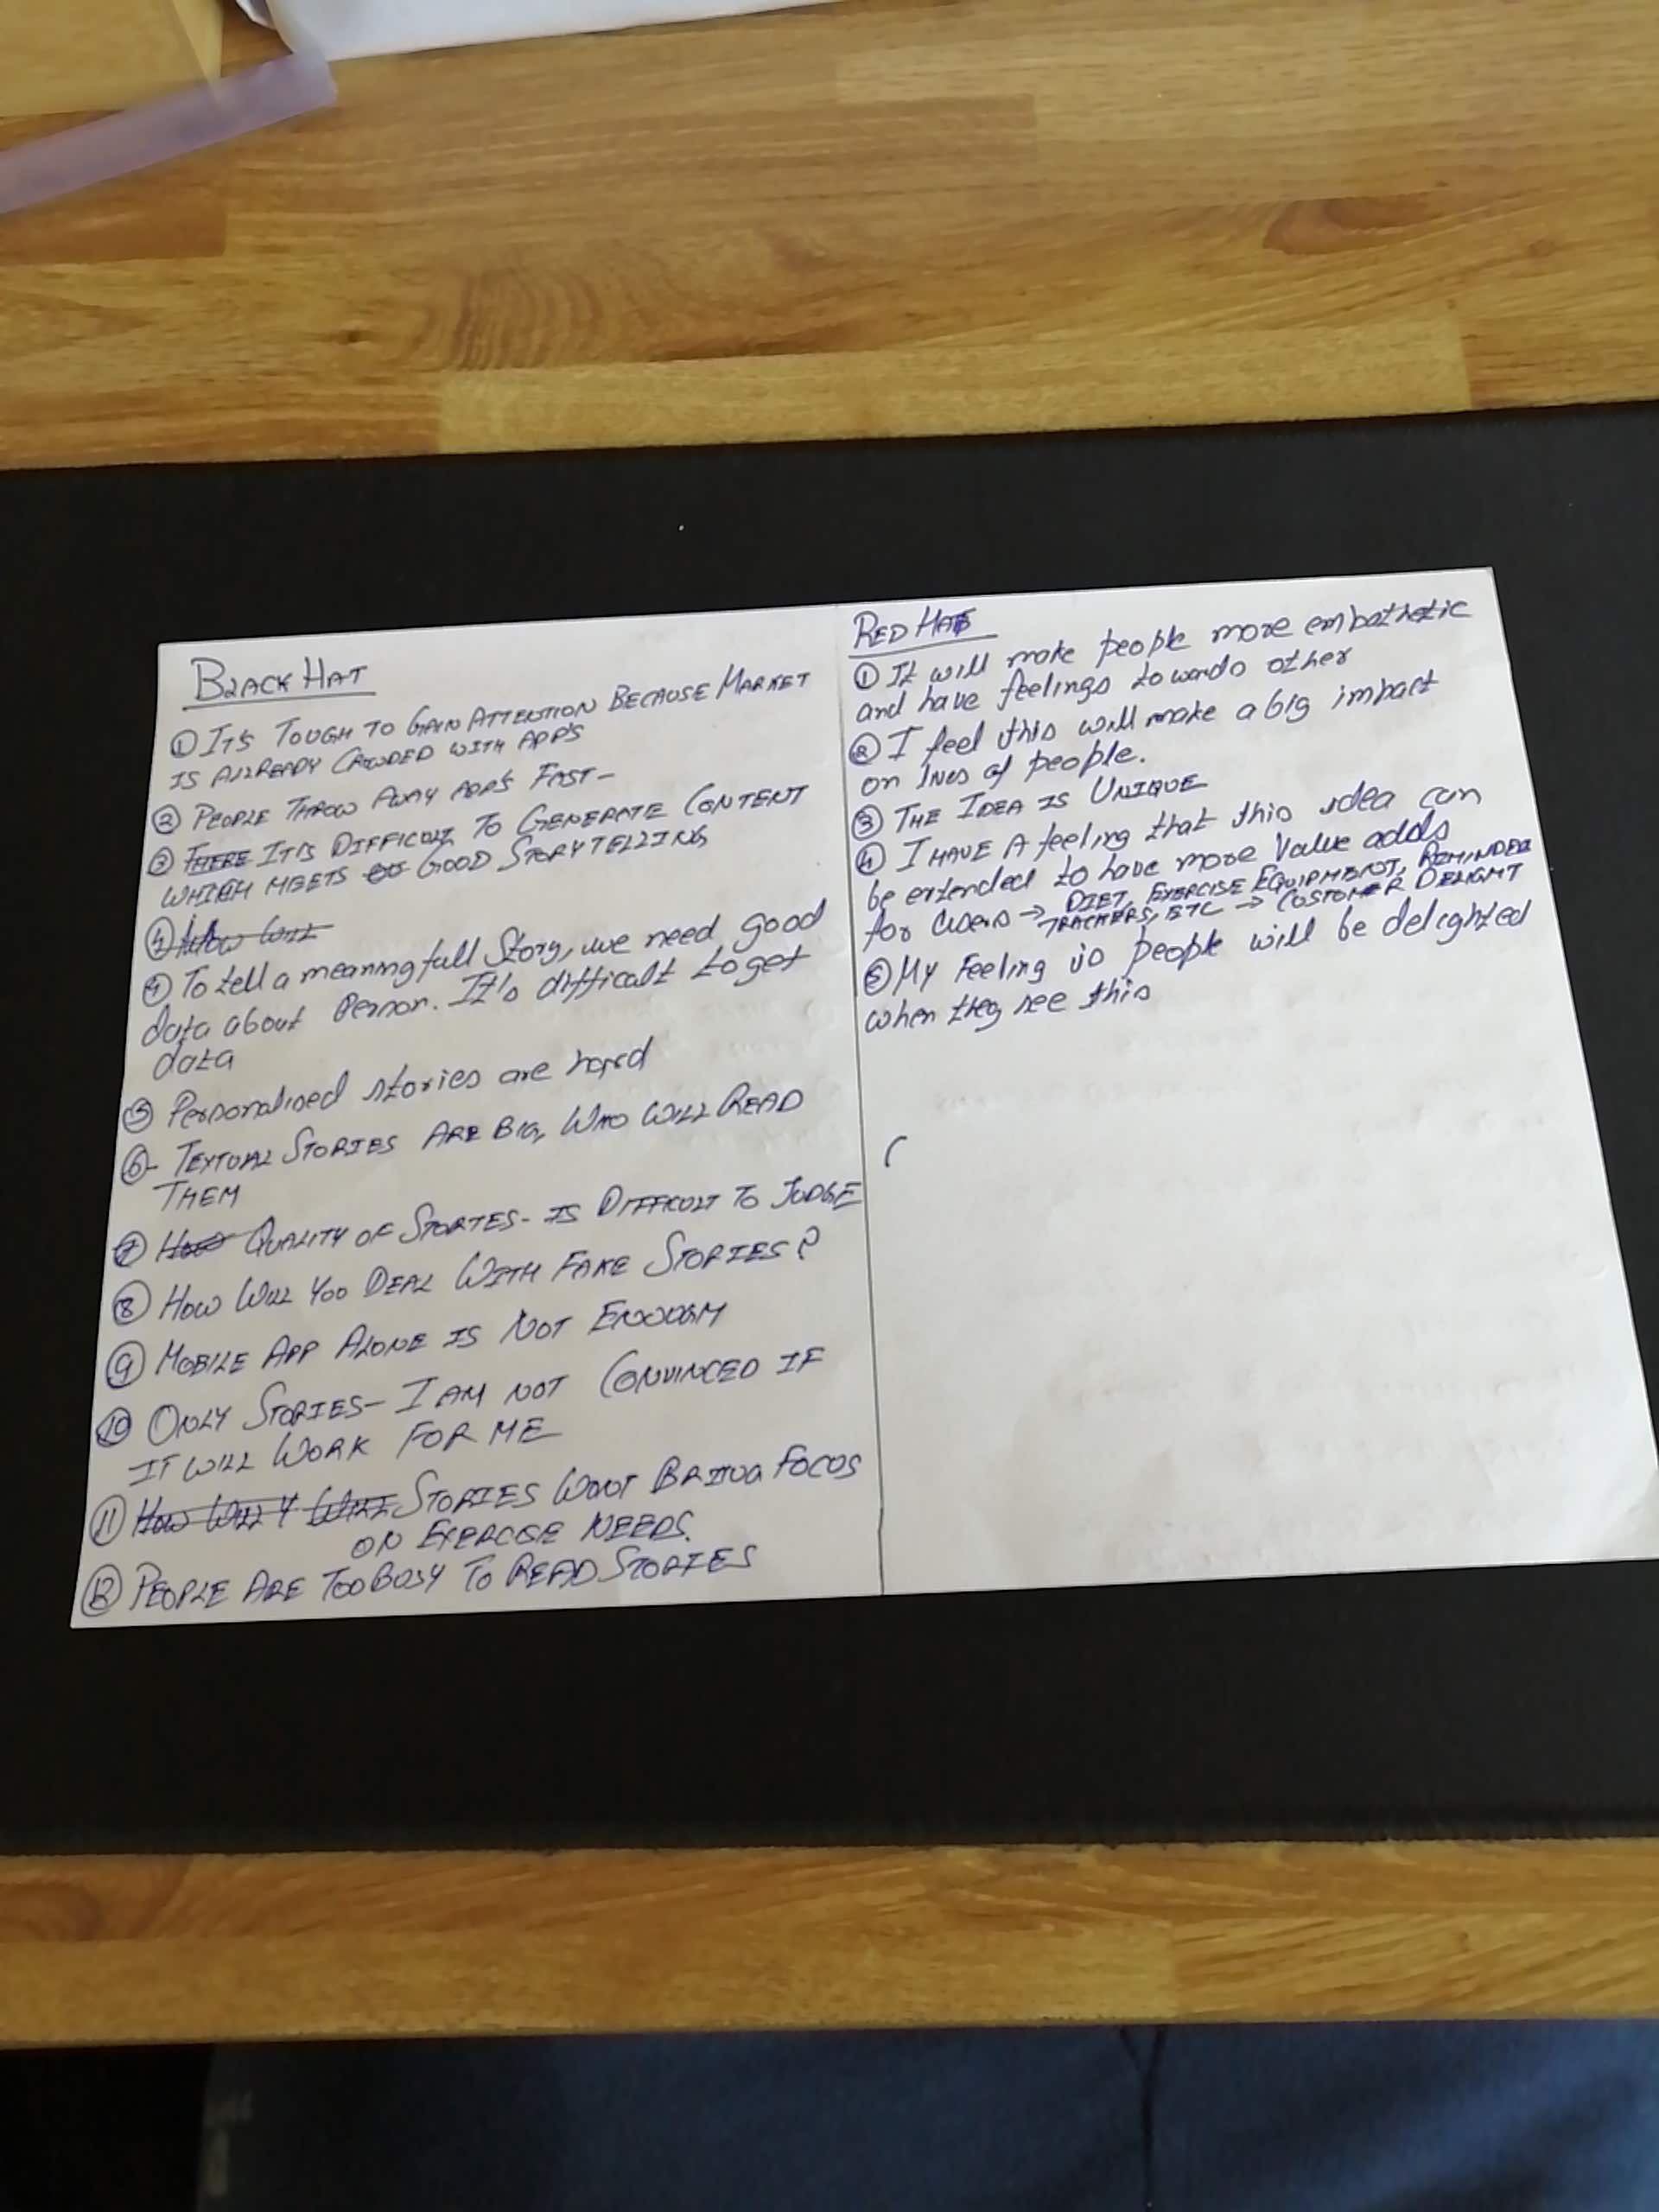 BLACK HAT
① IT'S TOUGH TO GAIN ATTENTION BECAUSE MARKET
IS ALLREADY CROWDED WITH APP'S
② PEOPLE THROW AWAY APP'S FAST-
③ THERE IT IS DIFFICULT TO GENERATE CONTENT
WHICH MEETS GOOD STORYTELLING
④ HOW WILL
④ To tell a meaningfull Story, we need good
data about Person. It's difficult to get
data
⑤ Personalised stories are hard
⑥- TEXTUAL STORIES ARE BIG, WHO WILL READ
THEM
⑦ HOW QUALITY OF STORIES- IS DIFFICULT TO JUDGE
⑧ HOW WILL YOU DEAL WITH FAKE STORIES?
⑨ MOBILE APP ALONE IS NOT ENOUGH
⑩ ONLY STORIES- I AM NOT CONVINCED IF
IT WILL WORK FOR ME
⑪ HOW WILL Y WILL STORIES WONT BRING FOCUS
ON EXERCISE NEEDS.
⑫ PEOPLE ARE TOO BUSY TO READ STORIES
RED HAT
① It will make people more empathetic
and have feelings towards other
② I feel this will make a big impact
on lives of people.
③ THE IDEA IS UNIQUE
④ I HAVE A feeling that this idea can
be extended to have more Value adds
for Users → DIET, EXERCISE EQUIPMENT, REMINDER
TRACKERS, ETC → CUSTOMER DELIGHT
⑤ MY Feeling is people will be delighted
when they see this